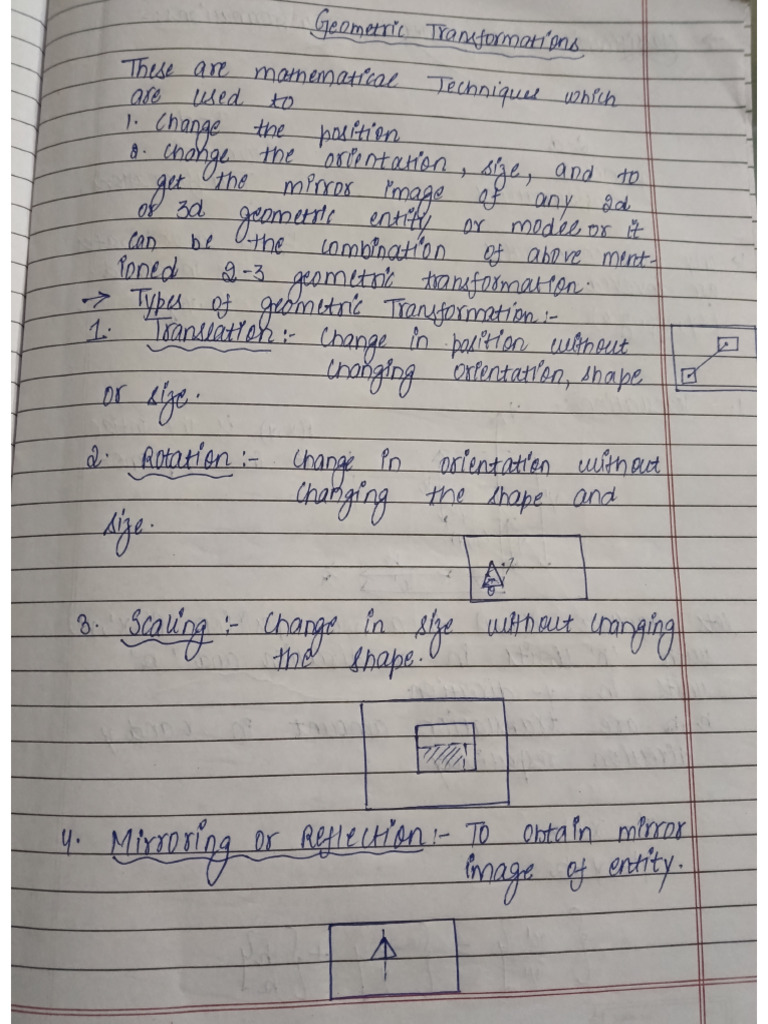 Geometric Transformations
These are mathematical Techniques which
are used to
1. Change the position
2. Change the orientation, size, and to
get the mirror image of any 2d
or 3d geometric entity or model or it
can be the combination of above ment-
ioned 2-3 geometric transformation.
→ Types of geometric Transformation:-
1. Translation:- Change in position without
changing orientation, shape
or size.
2. Rotation:- Change in orientation without
changing the shape and
size.
3. Scaling:- Change in size without changing
the shape.
4. Mirroring or Reflection:- To obtain mirror
image of entity.